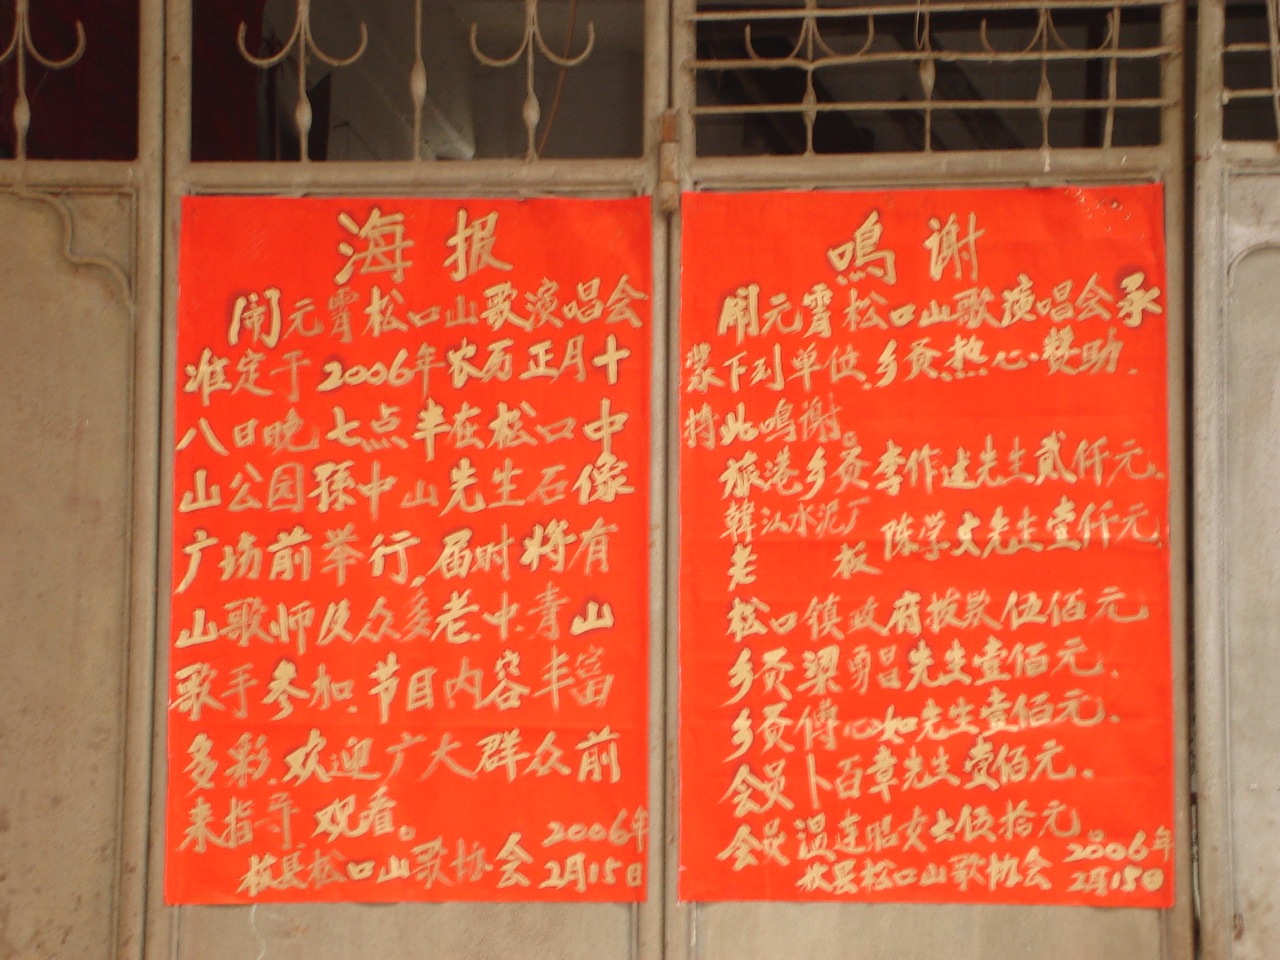 海报
闹元霄松口山歌演唱会
准定于2006年农历正月十
八日晚七点半在松口中
山公园孫中山先生石像
广场前举行,届时将有
山歌师及众多老.中.青山
歌手参加.节目内容丰富
多彩.欢迎广大群众前
来指导观看。
梅县松口山歌协会
2006年
2月15日
鳴谢
闹元霄松口山歌演唱会承
蒙下列单位.乡贤热心赞助.
特此鳴谢。
旅港乡贤李作述先生贰仟元.
韓江水泥厂
老 板 陈学文先生壹仟元.
松口镇政府拨款伍佰元
乡贤梁勇昌先生壹佰元.
乡贤傅心如先生壹佰元.
会员卜百章先生壹佰元.
会员温连昭女士伍拾元
梅县松口山歌协会
2006年
2月15日